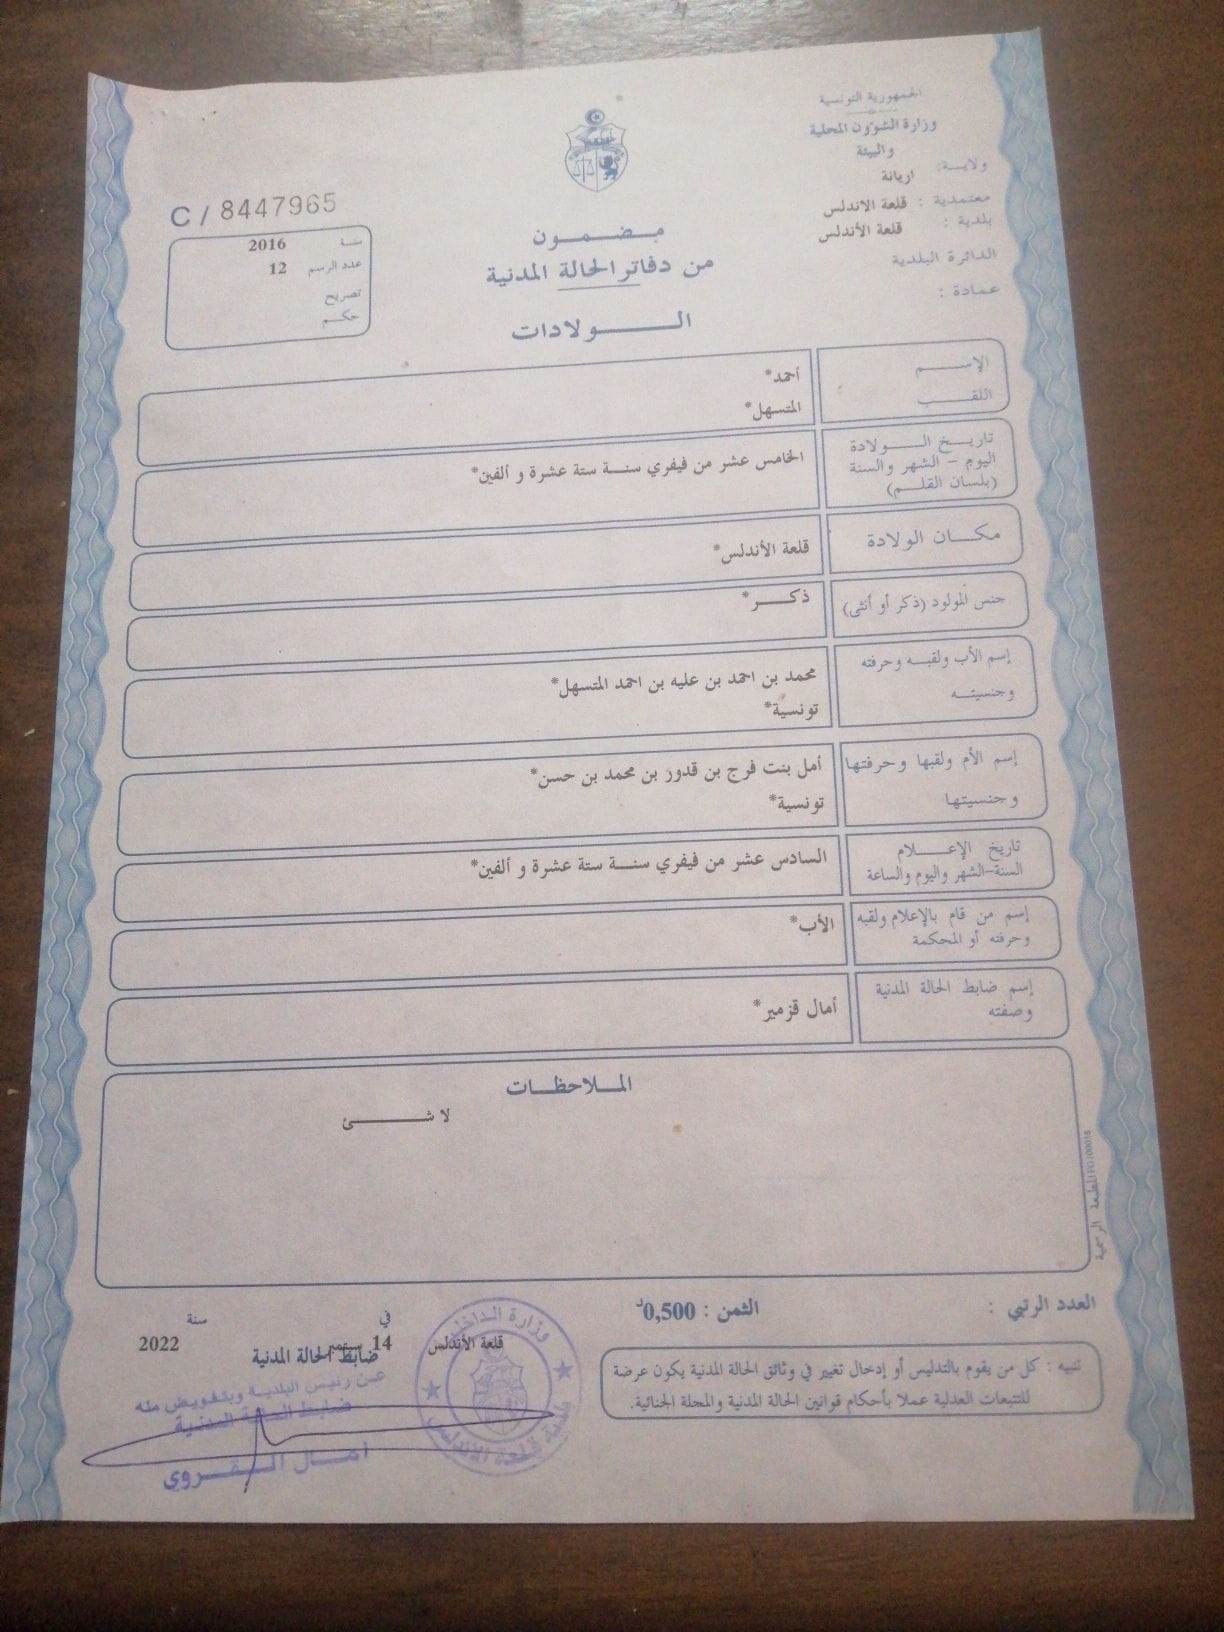 الجمهورية التونسية
وزارة الشؤون المحلية
والبيئة
ولايــة: اريانة
معتمدية : قلعة الاندلس
بلدية : قلعة الأندلس
الدائرة البلدية
عمادة :
C / 8447965
سنة 2016
عدد الرسم 12
تصريح
حكم
مضمون
من دفاتر الحالة المدنية
الولادات
الإسم
أحمد*
اللقب
المتسهل*
تاريخ الولادة
اليوم - الشهر والسنة
(بلسان القلم)
الخامس عشر من فيفري سنة ستة عشرة و ألفين*
مكان الولادة
قلعة الأندلس*
جنس المولود (ذكر أو أنثى)
ذكر*
إسم الأب ولقبه وحرفته
وجنسيته
محمد بن احمد بن عليه بن احمد المتسهل*
تونسية*
إسم الأم ولقبها وحرفتها
وجنسيتها
أمل بنت فرج بن قدور بن محمد بن حسن*
تونسية*
تاريخ الإعلام
السنة-الشهر واليوم والساعة
السادس عشر من فيفري سنة ستة عشرة و ألفين*
إسم من قام بالإعلام ولقبه
وحرفته أو المحكمة
الأب*
إسم ضابط الحالة المدنية
وصفته
أمال قزمير*
الملاحظات
لا شئ
المطبعة الرسمية
العدد الرتبي :
الثمن : 0,500د
تنبيه : كل من يقوم بالتدليس أو إدخال تغيير في وثائق الحالة المدنية يكون عرضة
للتتبعات العدلية عملا بأحكام قوانين الحالة المدنية والمجلة الجنائية.
قلعة الأندلس في 14 سنة 2022
ضابط الحالة المدنية
عن رئيس البلدية وبتفويض منه
ضابط الحالة المدنية
وزارة الداخلية
بلدية قلعة الاندلس